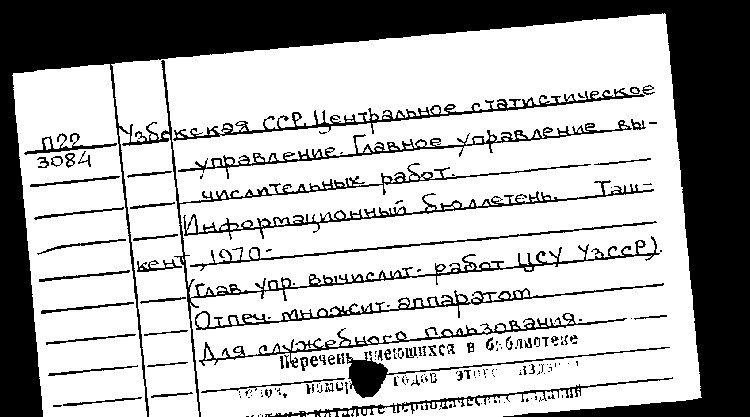 П22
3084
Узбекская ССР. Центральное статистическое
управление. Главное управление вы-
числительных работ.
Информационный бюллетень. Таш-
кент, 1970-
(Глав. упр. вычислит. работ ЦСУ УзССР).
Отпеч. множит. аппаратом.
Для служебного пользования.
Перечень имеющихся в библиотеке
номер годов этого издания
в каталоге периодических изданий